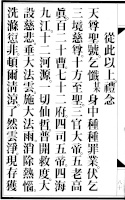 從此以上禮念
天尊聖號乞懺某身中種種罪業伏乞
三境慈尊十方至聖三官大帝五老高
眞百二十曹七十二府四司五帝四海
九江十二河源一切仙哲普開救度大
設慈悲垂大法雲施大法雨消除熱惱
洗滌愆非頓爾清涼了然雲淨現存獲